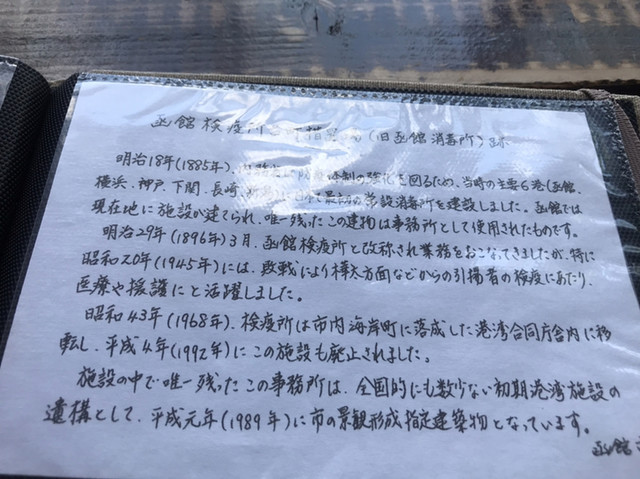 函館検疫所 (旧函館消毒所) 跡
明治18年(1885年)、の強化を図るため、当時の主要6港(函館、
横浜、神戸、下関、長崎、で最初の常設消毒所を建設しました。函館では
現在地に施設が建てられ、唯一残ったこの建物は事務所として使用されたものです。
明治29年(1896年)3月、函館検疫所と改称され業務をおこなってきましたが、特に
昭和20年(1945年)には、敗戦により樺太方面などからの引揚者の検疫にあたり、
医療や援護にと活躍しました。
昭和43年(1968年)、検疫所は市内海岸町に落成した港湾合同庁舎内に移
転し、平成4年(1992年)にこの施設も廃止されました。
施設の中で唯一残ったこの事務所は、全国的にも数少ない初期港湾施設の
遺構として、平成元年(1989年)に市の景観形成指定建築物となっています。
函館